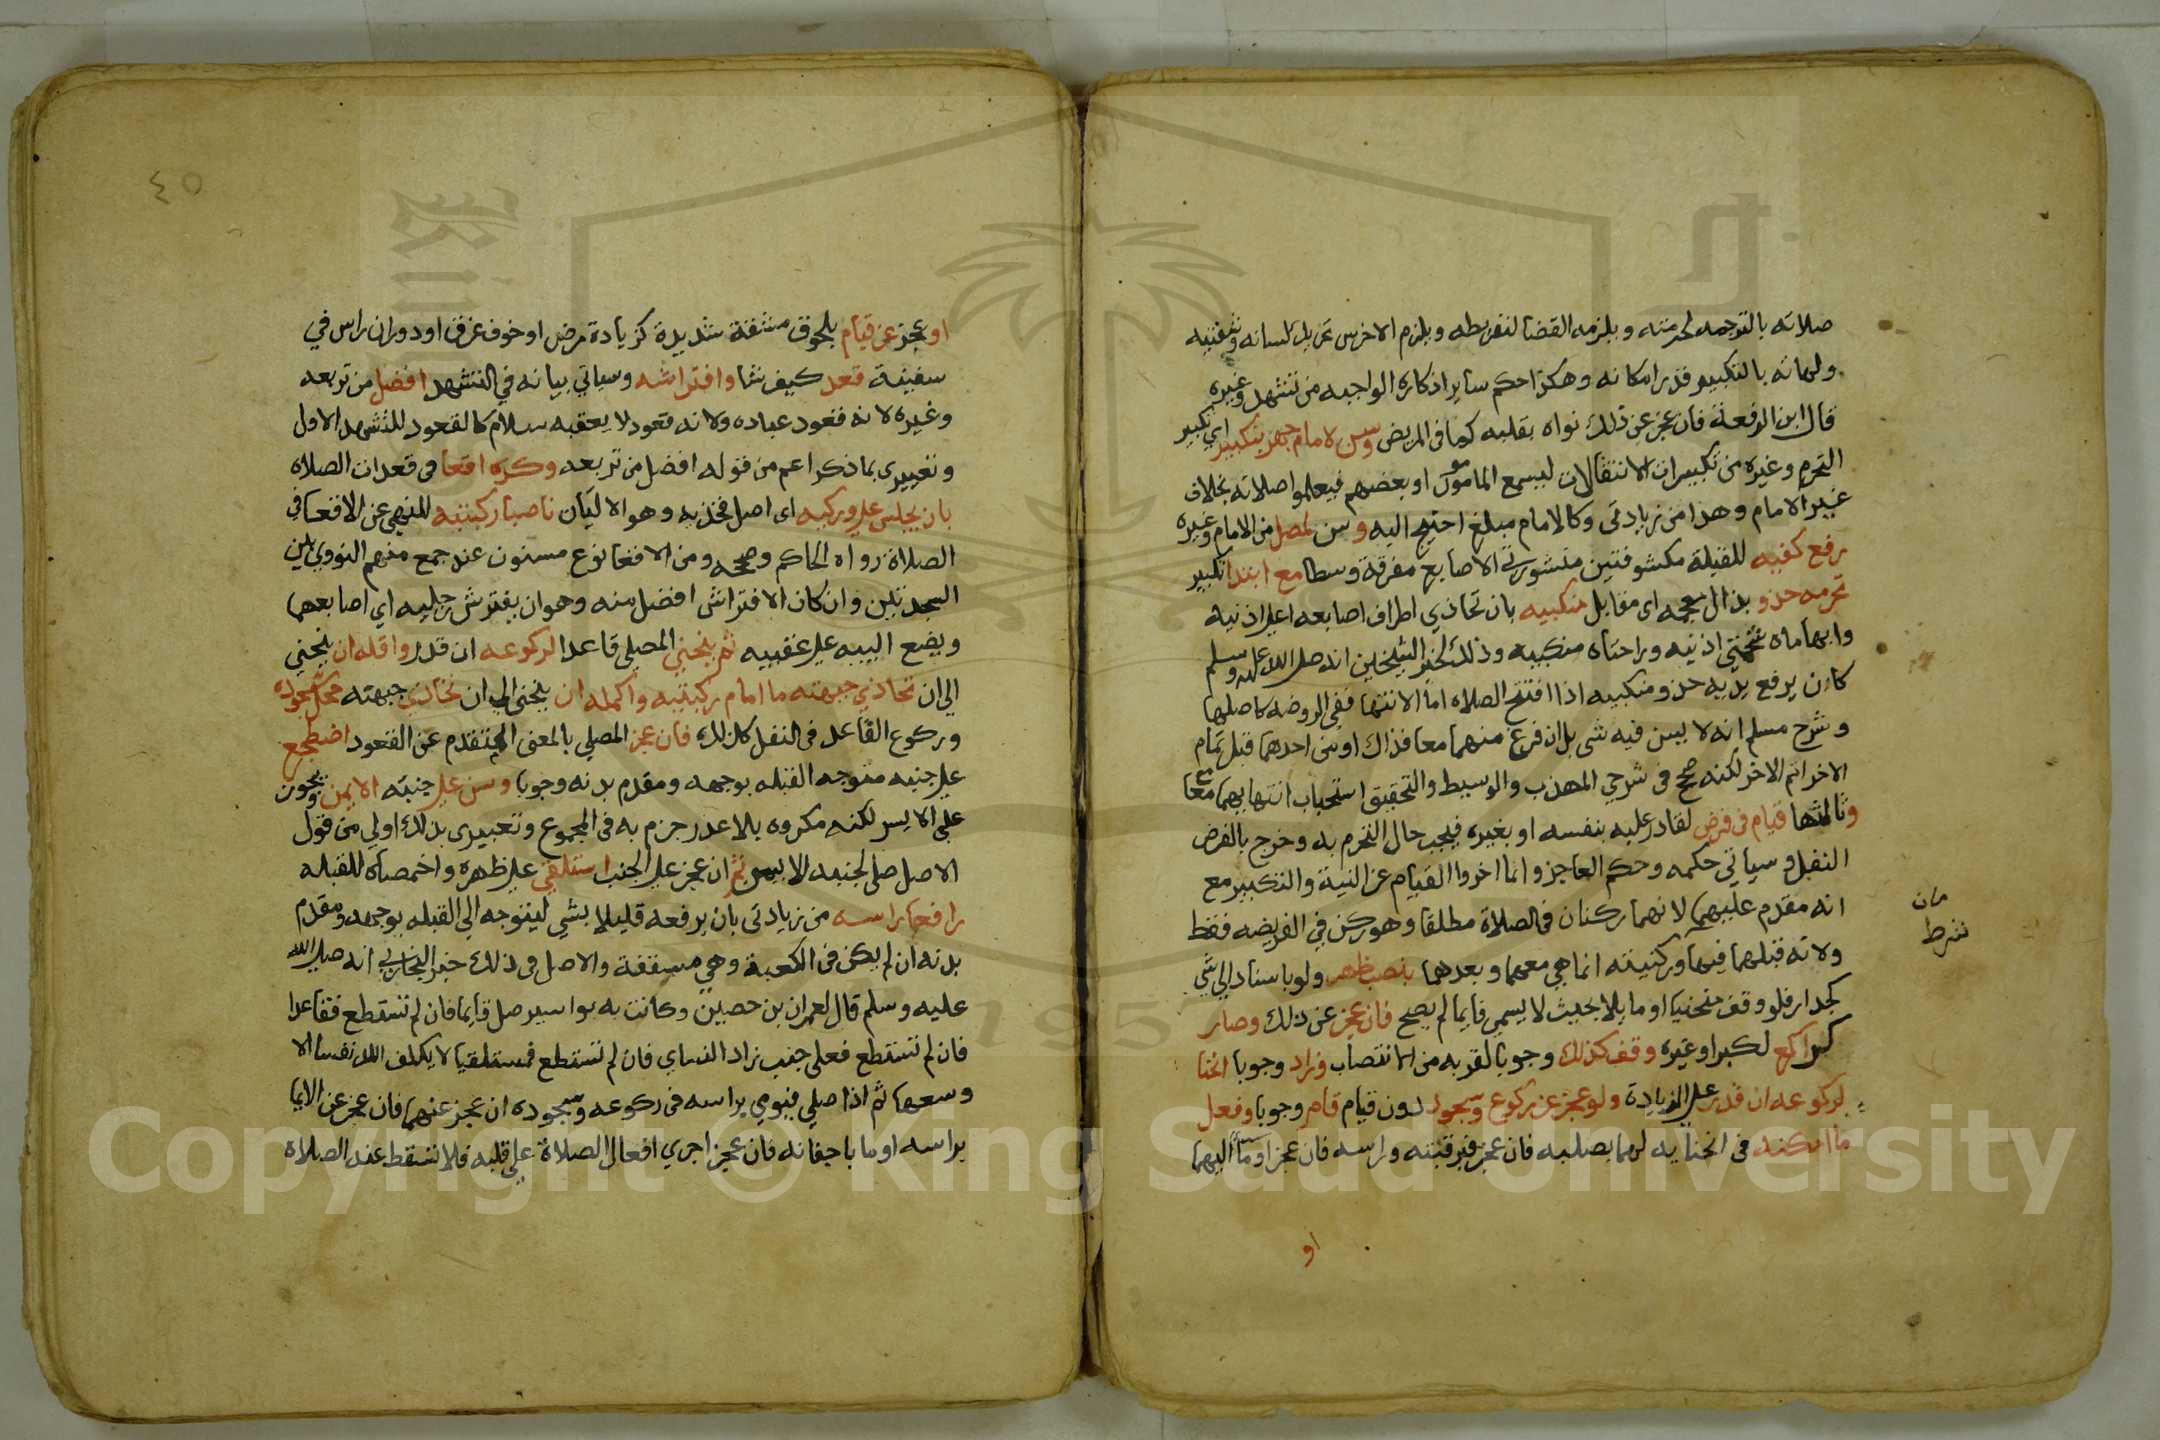 صلاته بالترجمه لحرمته ويلزمه القضا لتفريطه ويلزم الاخرس تحريك لسانه وشفتيه
ولهاته بالتكبير قدر امكانه وهكذا حكم ساير اذكاره الواجبه من تشهد وغيره
قال ابن الرفعة فان عجز عن ذلك نواه بقلبه كما في المريض وسن لامام جهر بتكبير اي تكبير
التحرم وغيره من تكبيرات الانتقالات ليسمع المامومون او بعضهم فيعلموا صلاته بخلاف
غير الامام وهذا من زيادتي وكالامام مبلغ احتيج اليه وسن لمصل من الامام وغيره
رفع كفيه للقبلة مكشوفتين منشورتي الاصابع مفرقة وسطا مع ابتدا تكبير
تحرمه حذو بذال معجمه اي مقابل منكبيه بان تحاذي اطراف اصابعه اعلى اذنيه
وابهاماه شحمتي اذنيه وراحتاه منكبيه وذلك لخبر الشيخين انه صلى الله عليه وسلم
كان يرفع يديه حذو منكبيه اذا افتتح الصلاه اما الانتها ففي الروضه كاصلها
وشرح مسلم انه لا يسن فيه شي بل ان فرغ منهما معا فذاك او من احدهما قبل تمام
الاخر اتم الاخر لكنه صحح في شرحي المهذب والوسيط والتحقيق استحباب انتهايهما معا
وثالثها قيام في فرض لقادر عليه بنفسه او بغيره فيجب حال التحرم به وخرج بالفرض
النفل وسياتي حكمه وحكم العاجز وانما اخروا القيام عن النية والتكبير مع
انه مقدم عليهما لانهما ركنان في الصلاة مطلقا وهو ركن في الفريضه فقط
ولانه قبلهما فيهما وركنيته انما هي معهما وبعدهما بنصب ظهر ولو باستناد الي شي
كجدار فلو وقف منحنيا او مايلا بحيث لا يسمي قايما لم يصح فان عجز عن ذلك وصار
كراكع لكبر او غيره وقف كذلك وجوبا لقربه من الانتصاب وزاد وجوبا انحنا
لركوعه ان قدر على الزيادة ولو عجز عن ركوع وسجود دون قيام قام وجوبا وفعل
ما امكنه في انحنايه لهما بصلبه فان عجز فبرقبته وراسه فان عجز اومأ اليهما
او
مان
شرط
٤٥
او عجز عن قيام بلحوق مشقة شديدة كزيادة مرض او خوف غرق او دوران راس في
سفينة قعد كيف شا وافتراشه وسياتي بيانه في التشهد افضل من تربعه
وغيره لانه قعود عباده ولانه قعود لا يعقبه سلام كالقعود للتشهد الاول
وتعبيري بما ذكر اعم من قوله افضل من تربعه وكره اقعا في قعدات الصلاه
بان يجلس على وركيه اي اصل فخذيه وهو الاليان ناصبا ركبتيه للنهي عن الاقعا في
الصلاة رواه الحاكم وصححه ومن الاقعا نوع مسنون عند جمع منهم النووي بين
السجدتين وان كان الافتراش افضل منه وهو ان يفترش رجليه اي اصابعهما
ويضع الييه على عقبيه ثم ينحني المصلي قاعدا لركوعه ان قدر واقله ان ينحني
الي ان تحاذي جبهته ما امام ركبتيه واكمله ان ينحني الي ان تحاذي جبهته محل سجوده
وركوع القاعد في النفل كذلك فان عجز المصلي بالمعني المتقدم عن القعود اضطجع
على جنبه متوجه القبله بوجهه ومقدم بدنه وجوبا وسن على جنبه الايمن ويجوز
على الايسر لكنه مكروه بلا عذر جزم به في المجموع وتعبيري بذلك اولي من قول
الاصل صلى لجنبه الايمن ثم ان عجز على الجنب استلقي على ظهره واخمصاه للقبله
رافعا راسه من زيادتي بان يرفعه قليلا بشي ليتوجه الي القبله بوجهه ومقدم
بدنه ان لم يكن في الكعبة وهي مسقفة والاصل في ذلك خبر البخاري انه صلى الله
عليه وسلم قال لعمران بن حصين وكانت به بواسير صل قايما فان لم تستطع فقاعدا
فان لم تستطع فعلى جنب زاد النساي فان لم تستطع فمستلقيا لا يكلف الله نفسا الا
وسعها ثم اذا صلي فيومي براسه في ركوعه وسجوده ان عجز عنهما فان عجز عن الايما
براسه اوما باجفانه فان عجز اجري افعال الصلاة على قلبه فلا تسقط عنه الصلاة
Copyright © King Saud University
1957